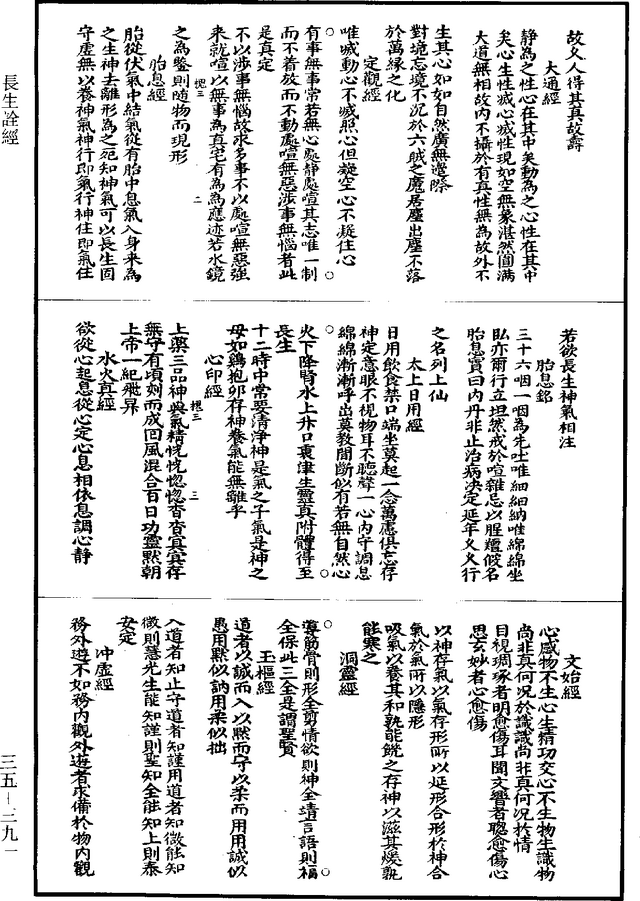 長生詮經
三五—三九一
故文人得其真故壽
大通經
静為之性心在其中矣動為之心性在其中
矣心生性滅心滅性現如空無象湛然圓滿
大道無相故内不攝於有真性無為故外不
生其心如如自然廣無邊際
對境忘境不沉於六賊之魔居塵出塵不落
於萬緣之化
定觀經
唯滅動心不滅照心但凝空心不凝住心
有事無事常若無心處静處喧其志唯一制
而不着放而不動處喧無惡涉事無惱者此
是真定
不以涉事無惱故求多事不以處喧無惡強
來就喧以無事為真宅有為為應迹若水鏡
之為鑒則隨物而現形
胎息經
胎從伏氣中結氣從有胎中息氣入身來為
之生神去離形為之死知神氣可以長生固
守虛無以養神氣神行即氣行神住即氣住
若欲長生神氣相注
胎息銘
三十六咽一咽為先吐唯細細納唯綿綿坐
臥亦爾行立坦然戒於喧雜忌以腥羶假名
胎息實曰内丹非止治病決定延年久久行
之名列上仙
太上日用經
日用飲食禁口端坐莫起一念萬慮俱忘存
神定意眼不視物耳不聽聲一心内守調息
綿綿漸漸呼出莫教間斷似有若無自然心
火下降腎水上升口裏津生靈真附體得至
長生
十二時中常要清淨神是氣之子氣是神之
母如鷄抱卵存神養氣能無離乎
心印經
上藥三品神與氣精恍恍惚惚杳杳冥冥存
無守有頃刻而成回風混合百日功靈默朝
上帝一紀飛昇
水火真經
欲從心起息從心定心息相依息調心静
文始經
心感物不生心生精功交心不生物生識物
尚非真何況於識識尚非真何況於情
目視琱琢者明愈傷耳聞文響者聰愈傷心
思玄妙者心愈傷
以神存氣以氣存形所以延形合形於神合
氣於氣所以隱形
吸氣以養其和孰能饑之存神以滋其煖孰
能寒之
洞靈經
導筋骨則形全剪情欲則神全靖言語則福
全保此三全是謂聖賢
玉樞經
道者以誠而入以默而守以柔而用用誠似
愚用默似訥用柔似拙
入道者知止守道者知謹用道者知微能知
微則慧光生能知謹則聖知全能知止則泰
安定
冲虛經
務外遊不如務内觀外遊者求備於物内觀